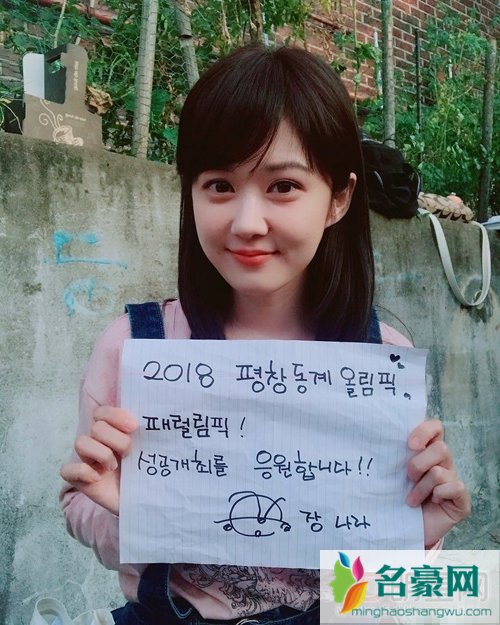 2018 평창동계올림픽
패럴림픽!
성공개최를 응원합니다!!
장 나라
名豪网
minghaoshangwu.com